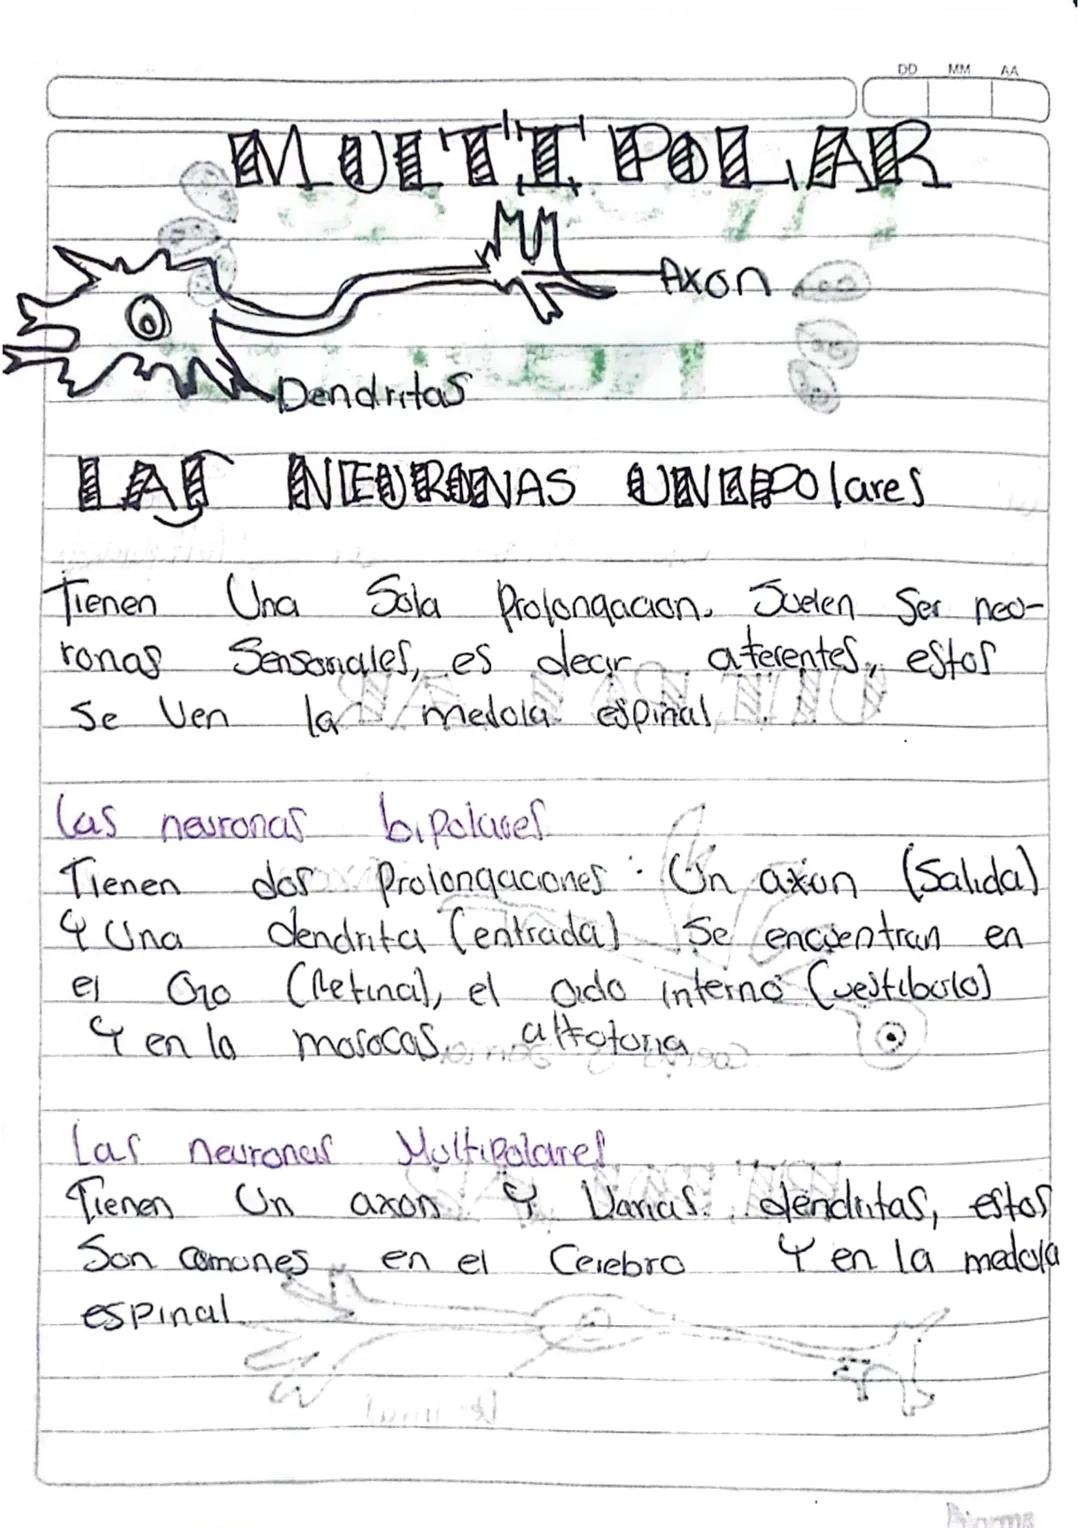 DD MM AA
MULTIPOLAR
Axon
Dendritas
LAS NEURONAS UNIPOlares
Tienen Una Sola Prolongacion. Suelen Ser neu-
ronas Sensoriales, es decir aferentes, estos
Se Ven la medula espinal
las neuronas bipolares
Tienen dos Prolongaciones: Un axon (Salida)
Y Una dendrita (entrada) Se encuentran en
el Ojo (Retina), el oido interno (vestibulo)
Y en la mosocas
Las neuronas Multipolares
Tienen Un axon Y Varias dendritas, estos
Son comunes en el Cerebro Y en la medula
espinal